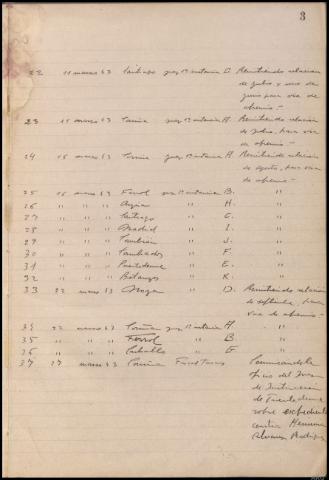 3
22 11 marzo 63 Santiago juez 1ª instancia D. Remitiendo relacion
de julio y una de
junio para via de
apremio —
23 15 marzo 63 Coruña juez 1ª instancia A. Remitiendo relacion
de Julio, para via
de apremio —
24 15 marzo 63 Coruña juez 1ª instancia A. Remitiendo relacion
de agosto, para via
de apremio —
25 15 marzo 63 Ferrol juez 1ª instancia B. "
26 " " " H. "
27 " " " Santiago C. "
28 " " " Madrid I. "
29 " " " J. "
30 " " " F. "
31 " " " Puentedeume E. "
32 " " " Betanzos K. "
33 22 marzo 63 D. Remitiendo relacion
de septiembre, para
via de apremio —
34 22 marzo 63 Coruña juez 1ª instancia A. "
35 " " " Ferrol B "
36 " " " Carballo G "
37 27 marzo 63 Coruña Comunicandole
oficio del Juez
de Instruccion
de Puentedeume
sobre expediente
contra
Alvarez Rodriguez